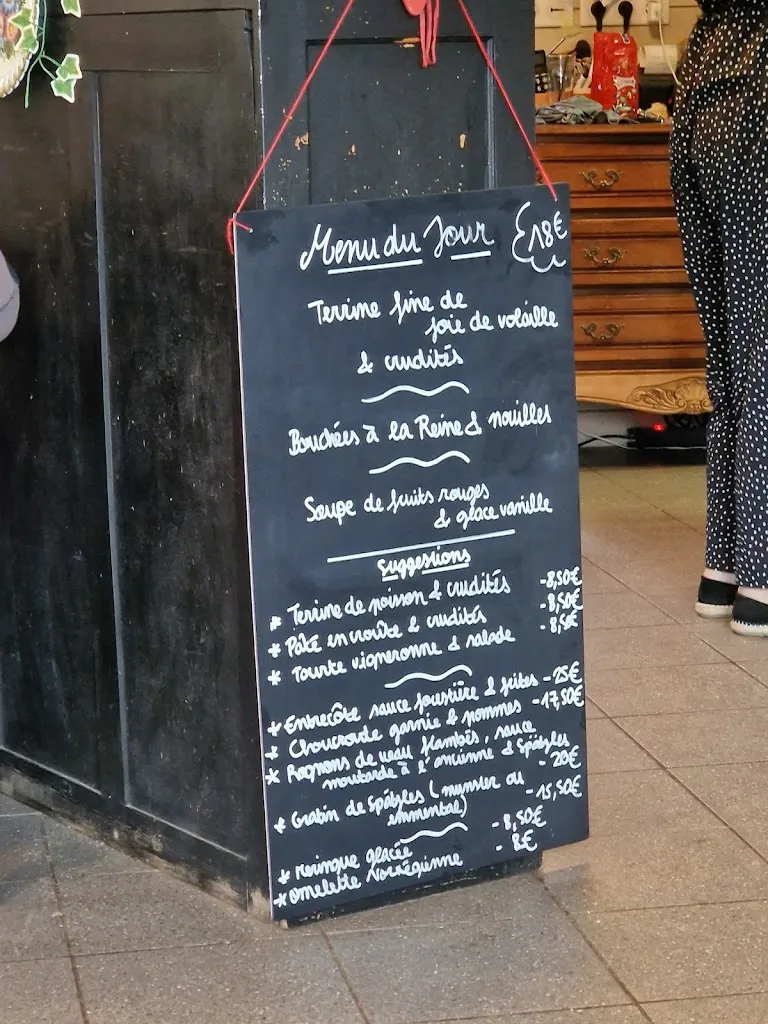 Menu du Jour 18€
Terrine fine de
foie de volaille
& crudités
Bouchées à la Reine & nouilles
Soupe de fruits rouges
& glace vanille
Suggestions
* Terrine de poisson & crudités - 8,50€
* Pâté en croûte & crudités - 8,50€
* Tourte vigneronne & salade - 8,50€
* Entrecôte sauce forestière & frites - 25€
* Choucroute garnie & pommes - 17,50€
* Rognons de veau flambés, sauce
moutarde à l'ancienne & Spätzles - 20€
* Gratin de Spätzles (munster ou - 15,50€
emmental)
* Meringue glacée - 8,50€
* Omelette Norvégienne - 8€